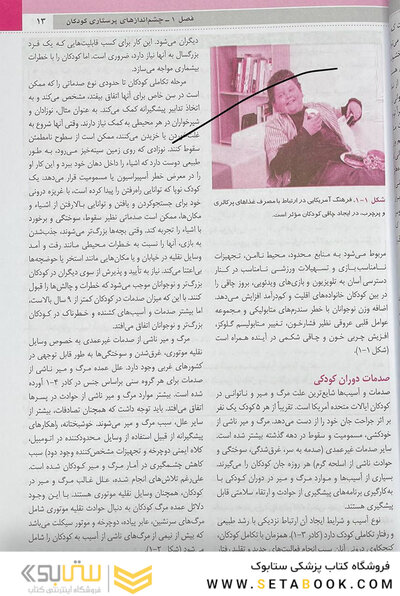 فصل ۱ ـ چشم‌اندازهای پرستاری کودکان
۱۳
شکل ۱-۱. فرهنگ آمریکایی در ارتباط با مصرف غذاهای پرکالری
و پرچرب، در ایجاد چاقی کودکان مؤثر است.
مربوط می‌شود به منابع محدود، محیط ناامن، تجهیزات
نامناسب بازی و تسهیلات ورزشی نامناسب در کنار
دسترسی آسان به تلویزیون و بازی‌های ویدئویی، بروز چاقی را
در بین کودکان خانواده‌های اقلیت و کم‌درآمد افزایش می‌دهد.
اضافه وزن نوجوانان با خطر سندرم‌های متابولیکی و مجموعه
عوامل قلبی عروقی نظیر فشارخون، تغییر متابولیسم گلوکز،
افزایش چربی خون و چاقی شکمی در آینده همراه است
(شکل ۱-۱)
صدمات دوران کودکی
صدمات و آسیب‌ها شایع‌ترین علت مرگ و میر و ناتوانی در
کودکان ایالات متحده آمریکا است. تقریباً از هر ۵ کودک یک نفر
بر اثر جراحت جان خود را از دست می‌دهد. مرگ و میر ناشی از
خودکشی، مسمومیت و سقوط در دهه گذشته بیشتر شده است.
سایر صدمات غیرعمدی (صدمه به سر، غرق‌شدگی، سوختگی و
حوادث ناشی از اسلحه گرم) هر روزه جان کودکان را می‌گیرند.
بسیاری از آسیب‌ها و موارد مرگ و میر در دوران کودکی با
به‌کارگیری برنامه‌های پیشگیری از حوادث و ارتقاء سلامتی قابل
پیشگیری هستند.
نوع آسیب و شرایط ایجاد آن ارتباط نزدیکی با رشد طبیعی
و رفتار تکاملی کودک دارد (کادر ۳-۱). همزمان با تکامل کودکان،
دیگران می‌شود. این کار برای کسب قابلیت‌هایی که یک فرد
بزرگسال به آنها نیاز دارد، ضروری است. اما کودکان را با خطرات
بیشماری مواجه می‌سازد.
مرحله تکاملی کودکان تا حدودی نوع صدماتی را که ممکن
است در سن خاص برای آنها اتفاق بیفتد، مشخص می‌کند و به
اتخاذ تدابیر پیشگیرانه کمک می‌کند. به عنوان مثال، نوزادان و
شیرخواران در هر محیطی به کمک نیاز دارند. وقتی آنها شروع به
غلت زدن یا خزیدن می‌کنند، ممکن است از سطوح نامطمئن
سقوط کنند. نوزادی که روی زمین سینه‌خیز می‌رود، به طور
طبیعی دوست دارد که اشیاء را داخل دهان خود ببرد و این کار او
را در معرض خطر آسپیراسیون یا مسمومیت قرار می‌دهد. یک
کودک نوپا که توانایی راه‌رفتن را پیدا کرده است، با غریزه درونی
خود برای جستجوکردن و یافتن و توانایی بالارفتن از اشیاء و
مکان‌ها، ممکن است صدماتی نظیر سقوط، سوختگی و برخورد
با اشیاء را تجربه کند. وقتی بچه‌ها بزرگ‌تر می‌شوند، جذب‌شدن
به بازی، آنها را نسبت به خطرات محیطی مانند رفت و آمد
وسایل نقلیه در خیابان و یا مکان‌هایی مانند استخر یا حوضچه‌ها
بی‌اعتنا می‌کند. نیاز به تأیید و پذیرش از سوی دیگران در کودکان
بزرگ‌تر و نوجوانان موجب می‌شود که خطرات و چالش‌ها را قبول
کنند. با این که میزان صدمات در کودکان کمتر از ۹ سال بالاست،
اما بیشتر صدمات و آسیب‌های کشنده و خطرناک در کودکان
بزرگ‌تر و نوجوانان اتفاق می‌افتد.
مرگ و میر ناشی از صدمات غیرعمدی به خصوص وسایل
نقلیه موتوری، غرق‌شدن و سوختگی‌ها به طور قابل توجهی در
کشورهای غربی وجود دارد. علل عمده مرگ و میر ناشی از
صدمات برای هر گروه سنی براساس جنس در کادر ۴-۱ آورده
شده است. بیشتر موارد مرگ و میر ناشی از حوادث در پسرها
اتفاق می‌افتد. باید توجه داشت که همچنان تصادفات، بیشتر از
سایر علل، سبب مرگ و میر می‌شوند. خوشبختانه، راهکارهای
پیشگیرانه از قبیل استفاده از وسایل محدودکننده در اتومبیل،
کلاه ایمنی دوچرخه و تجهیزات مشخص‌کننده وجود دارد) سبب
کاهش چشمگیری در آمار مرگ و میر کودکان شده است.
علی‌رغم تلاش‌های انجام شده، علل غالب مرگ و میر در
کودکان، همچنان وسایل نقلیه موتوری هستند. با این وجود
دلائل عمده مرگ کودکان به دنبال حوادث نقلیه موتوری شامل
مرگ‌های سرنشین، عابر پیاده، دوچرخه و موتور سیکلت می‌باشد
که بیش از نیمی از مرگ‌های ناشی از آسیب را شامل
فروشگاه کتاب پزشکی ستابوک
WWW.SETABOOK.COM
ستابوک
فروشگاه اینترنتی کتاب